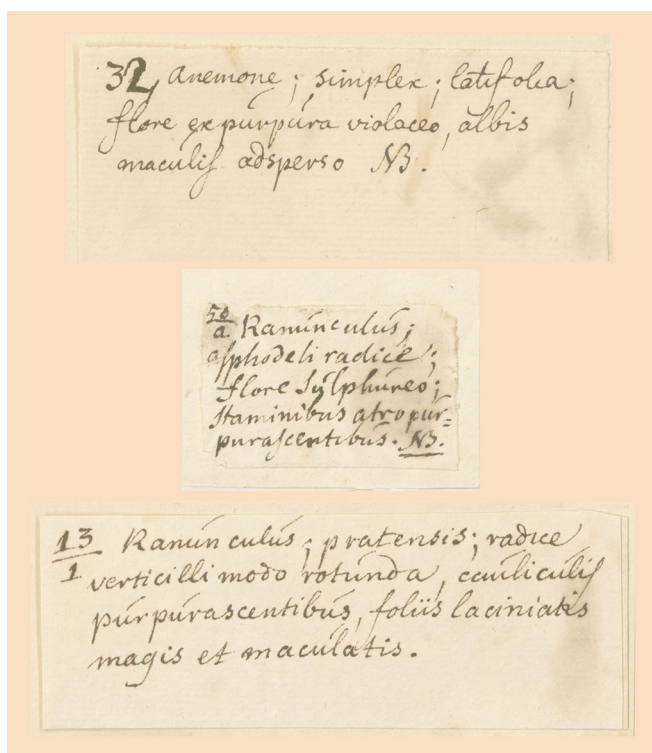 32 Anemone; simplex; latifolia;
flore ex purpura violaceo, albis
maculis adsperso NB.
50
a Ranunculus;
asphodeli radice;
flore Sulphureo;
staminibus atropur=
purascentibus. NB.
13 Ranunculus; pratensis; radice
1 verticilli modo rotunda, cauliculis
purpurascentibus, foliis laciniatis
magis et maculatis.